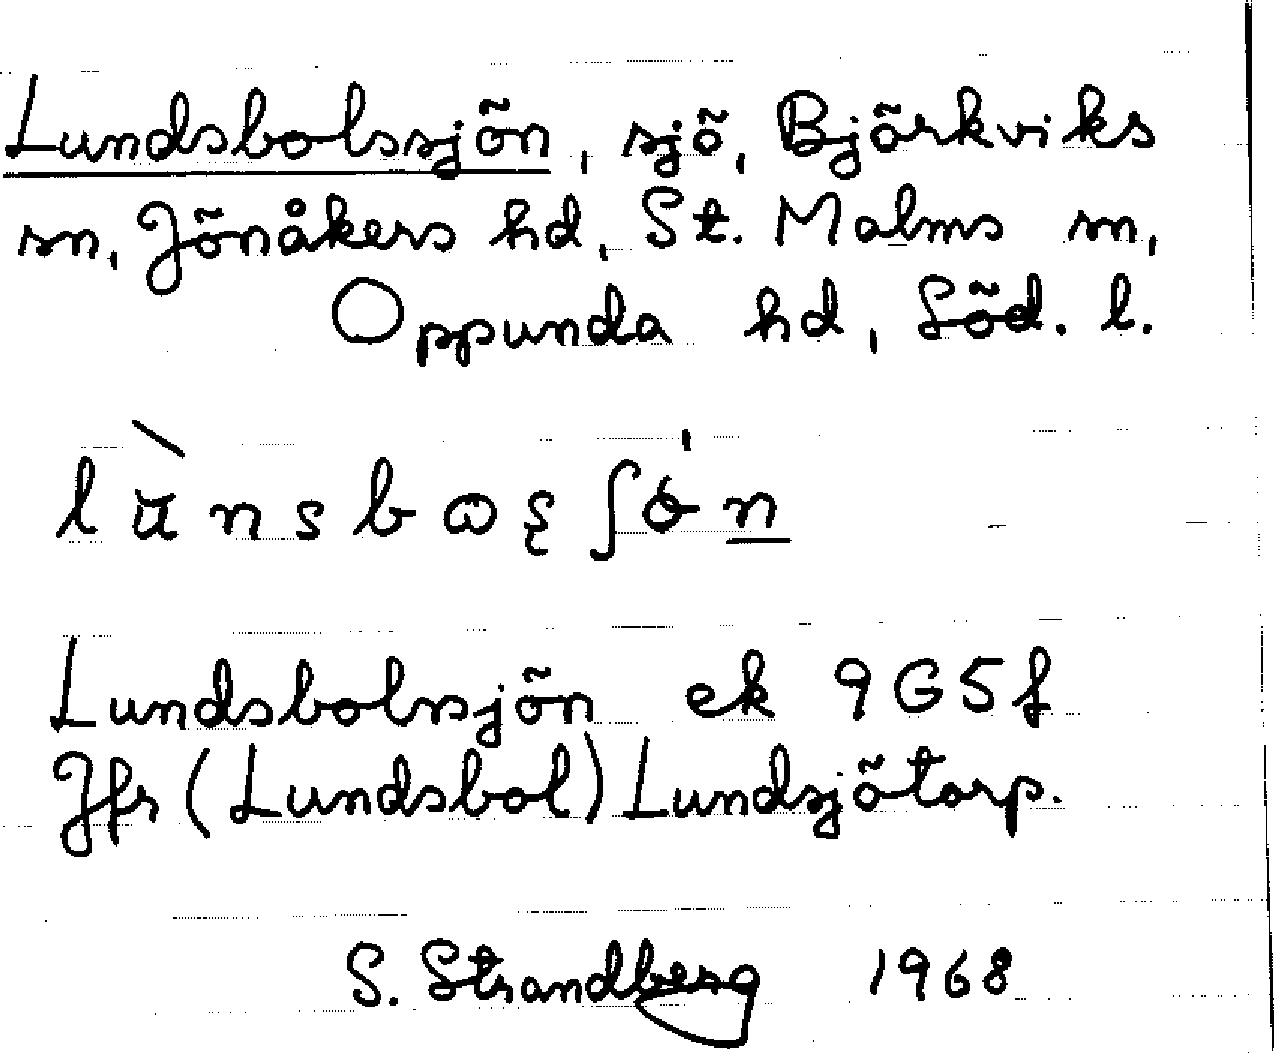 Lundsbolssjön, sjö, Björkviks
sn, Jönåkers hd, St. Malms sn,
Oppunda hd, Söd. l.
Lundsbolnsjön ek 9G5f
Jfr (Lundsbol) Lundsjötorp.
S. Strandberg 1968